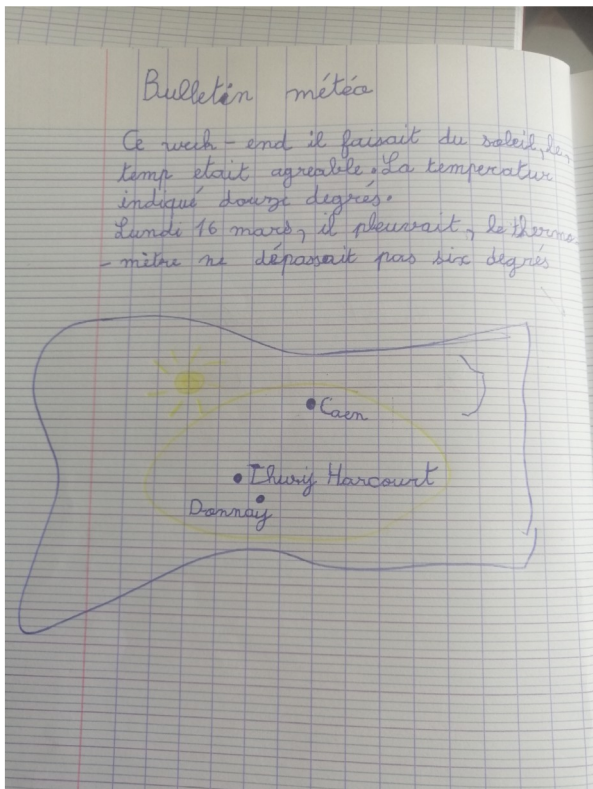 Bulletin météo
Ce week-end il faisait du soleil, le
temp etait agreable. La temperatur
indiqué douze degrés.
Lundi 16 mars, il pleuvait, le thermo
- mètre ne dépassait pas six degrés
Caen
Thury Harcourt
Donnay